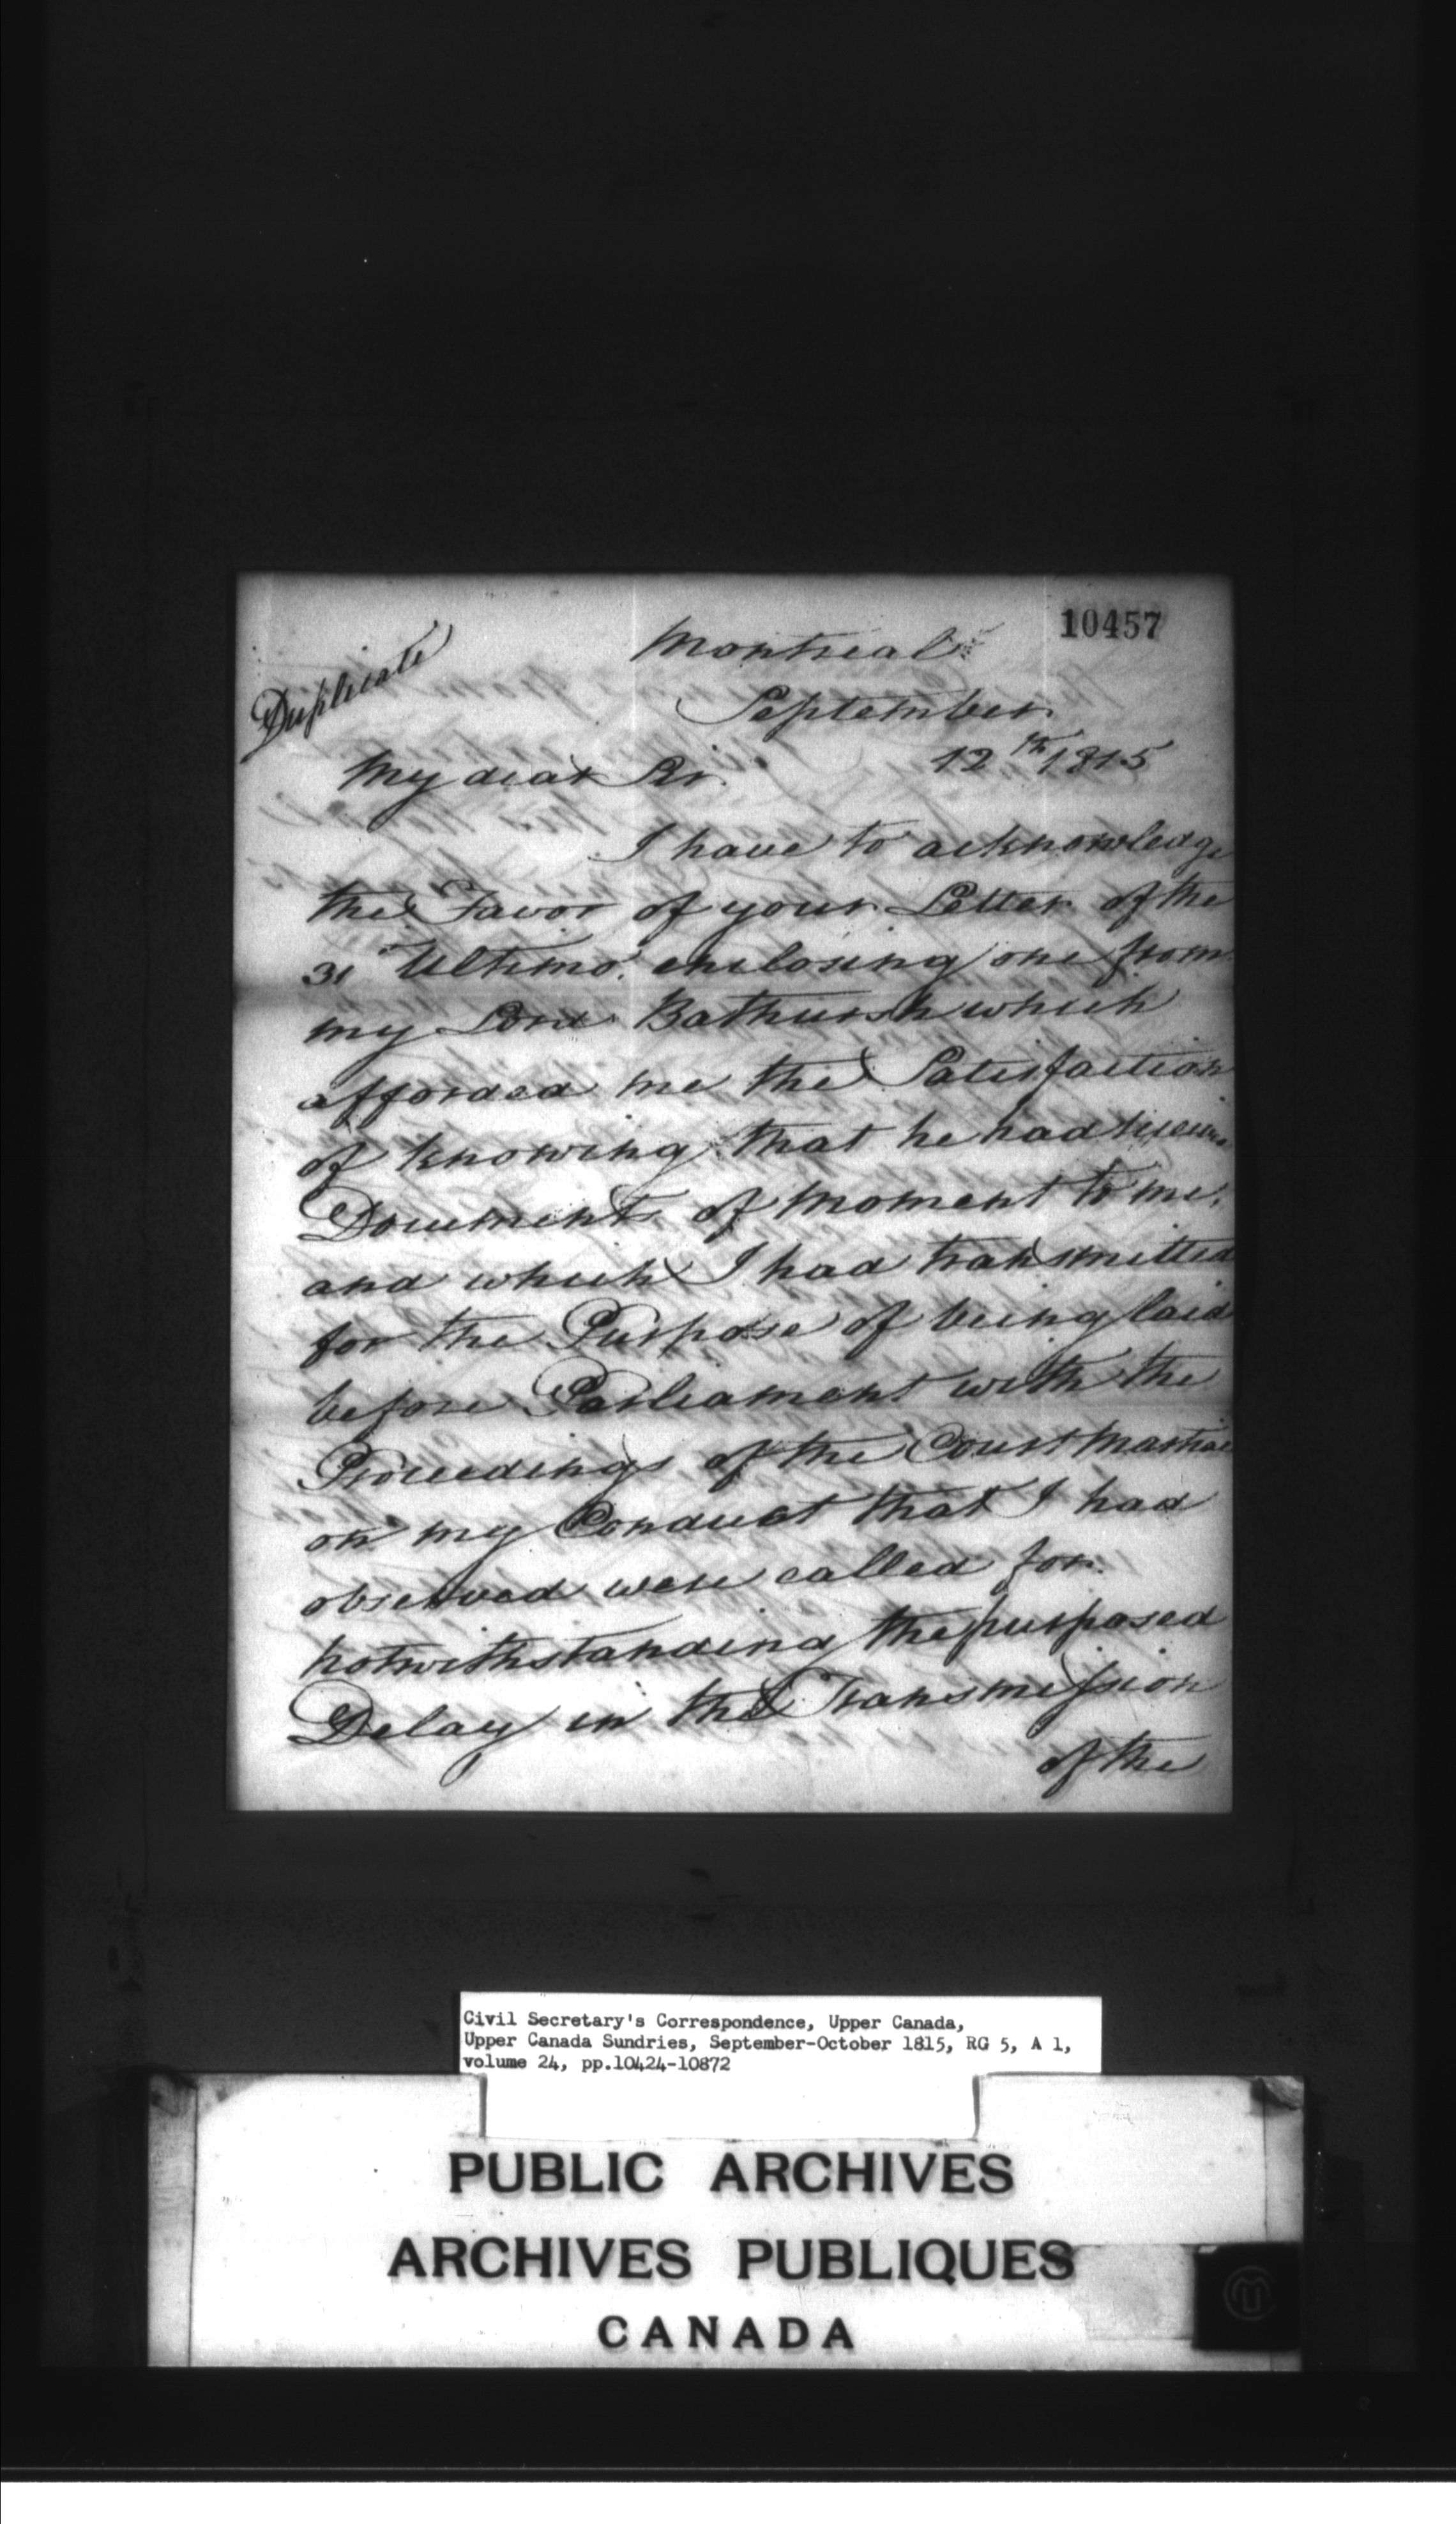 10457
Duplicate
Montreal
September
12th 1815
My dear Sir.
I have to acknowledge
the Favor of your Letter of the
31st Ultimo. enclosing one from
my Lord Bathursh which
afforded me the Satisfaction
of knowing that he had
Documents of Moment to me,
and which I had transmitted
for the Purpose of being laid
before Parliament with the
Proceedings of the Court Martial
on my Conduct that I had
observed were called for.
notwithstanding the purposed
Delay in the Transmission
of the
Civil Secretary's Correspondence, Upper Canada,
Upper Canada Sundries, September-October 1815, RG 5, A 1,
volume 24, pp.10424-10872
PUBLIC ARCHIVES
ARCHIVES PUBLIQUES
CANADA